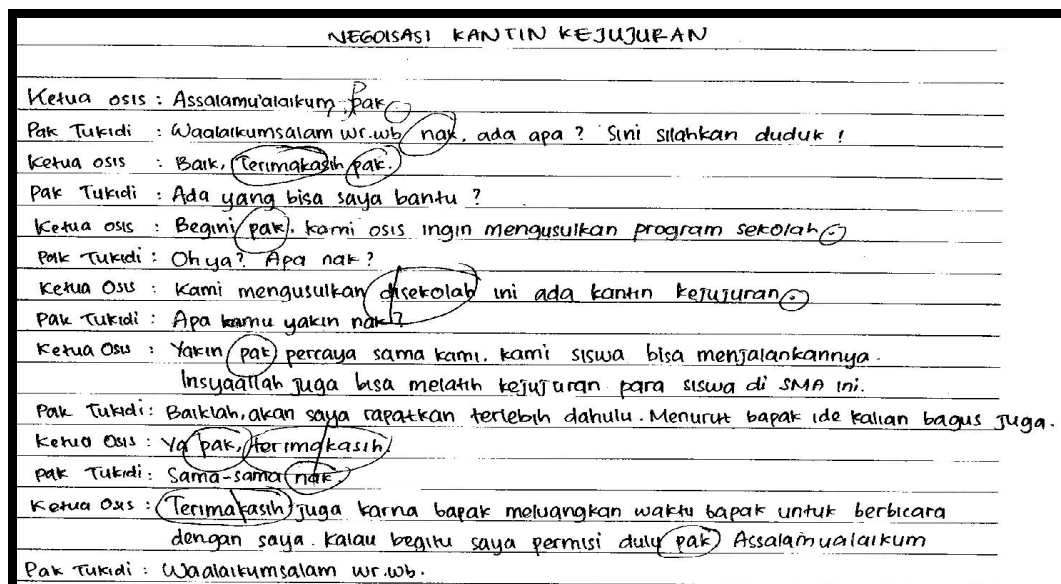 NEGOISASI KANTIN KEJUJURAN
Ketua osis : Assalamu'alaikum, pak.
Pak Tukidi : Waalaikumsalam wr.wb nak, ada apa? Sini silahkan duduk!
Ketua osis : Baik, Terimakasih pak.
Pak Tukidi : Ada yang bisa saya bantu?
Ketua osis : Begini pak, kami osis ingin mengusulkan program sekolah.
Pak Tukidi : Oh ya? Apa nak?
Ketua Osis : Kami mengusulkan disekolah ini ada kantin kejujuran.
Pak Tukidi : Apa kamu yakin nak?
Ketua Osis : Yakin pak percaya sama kami. kami siswa bisa menjalankannya.
Insyaallah juga bisa melatih kejujuran para siswa di SMA ini.
Pak Tukidi : Baiklah, akan saya rapatkan terlebih dahulu. Menurut bapak ide kalian bagus juga.
Ketua Osis : Ya pak, terimakasih.
Pak Tukidi : Sama-sama nak.
Ketua Osis : Terimakasih juga karna bapak meluangkan waktu bapak untuk berbicara
dengan saya. Kalau begitu saya permisi dulu pak Assalamualaikum
Pak Tukidi : Waalaikumsalam wr.wb.